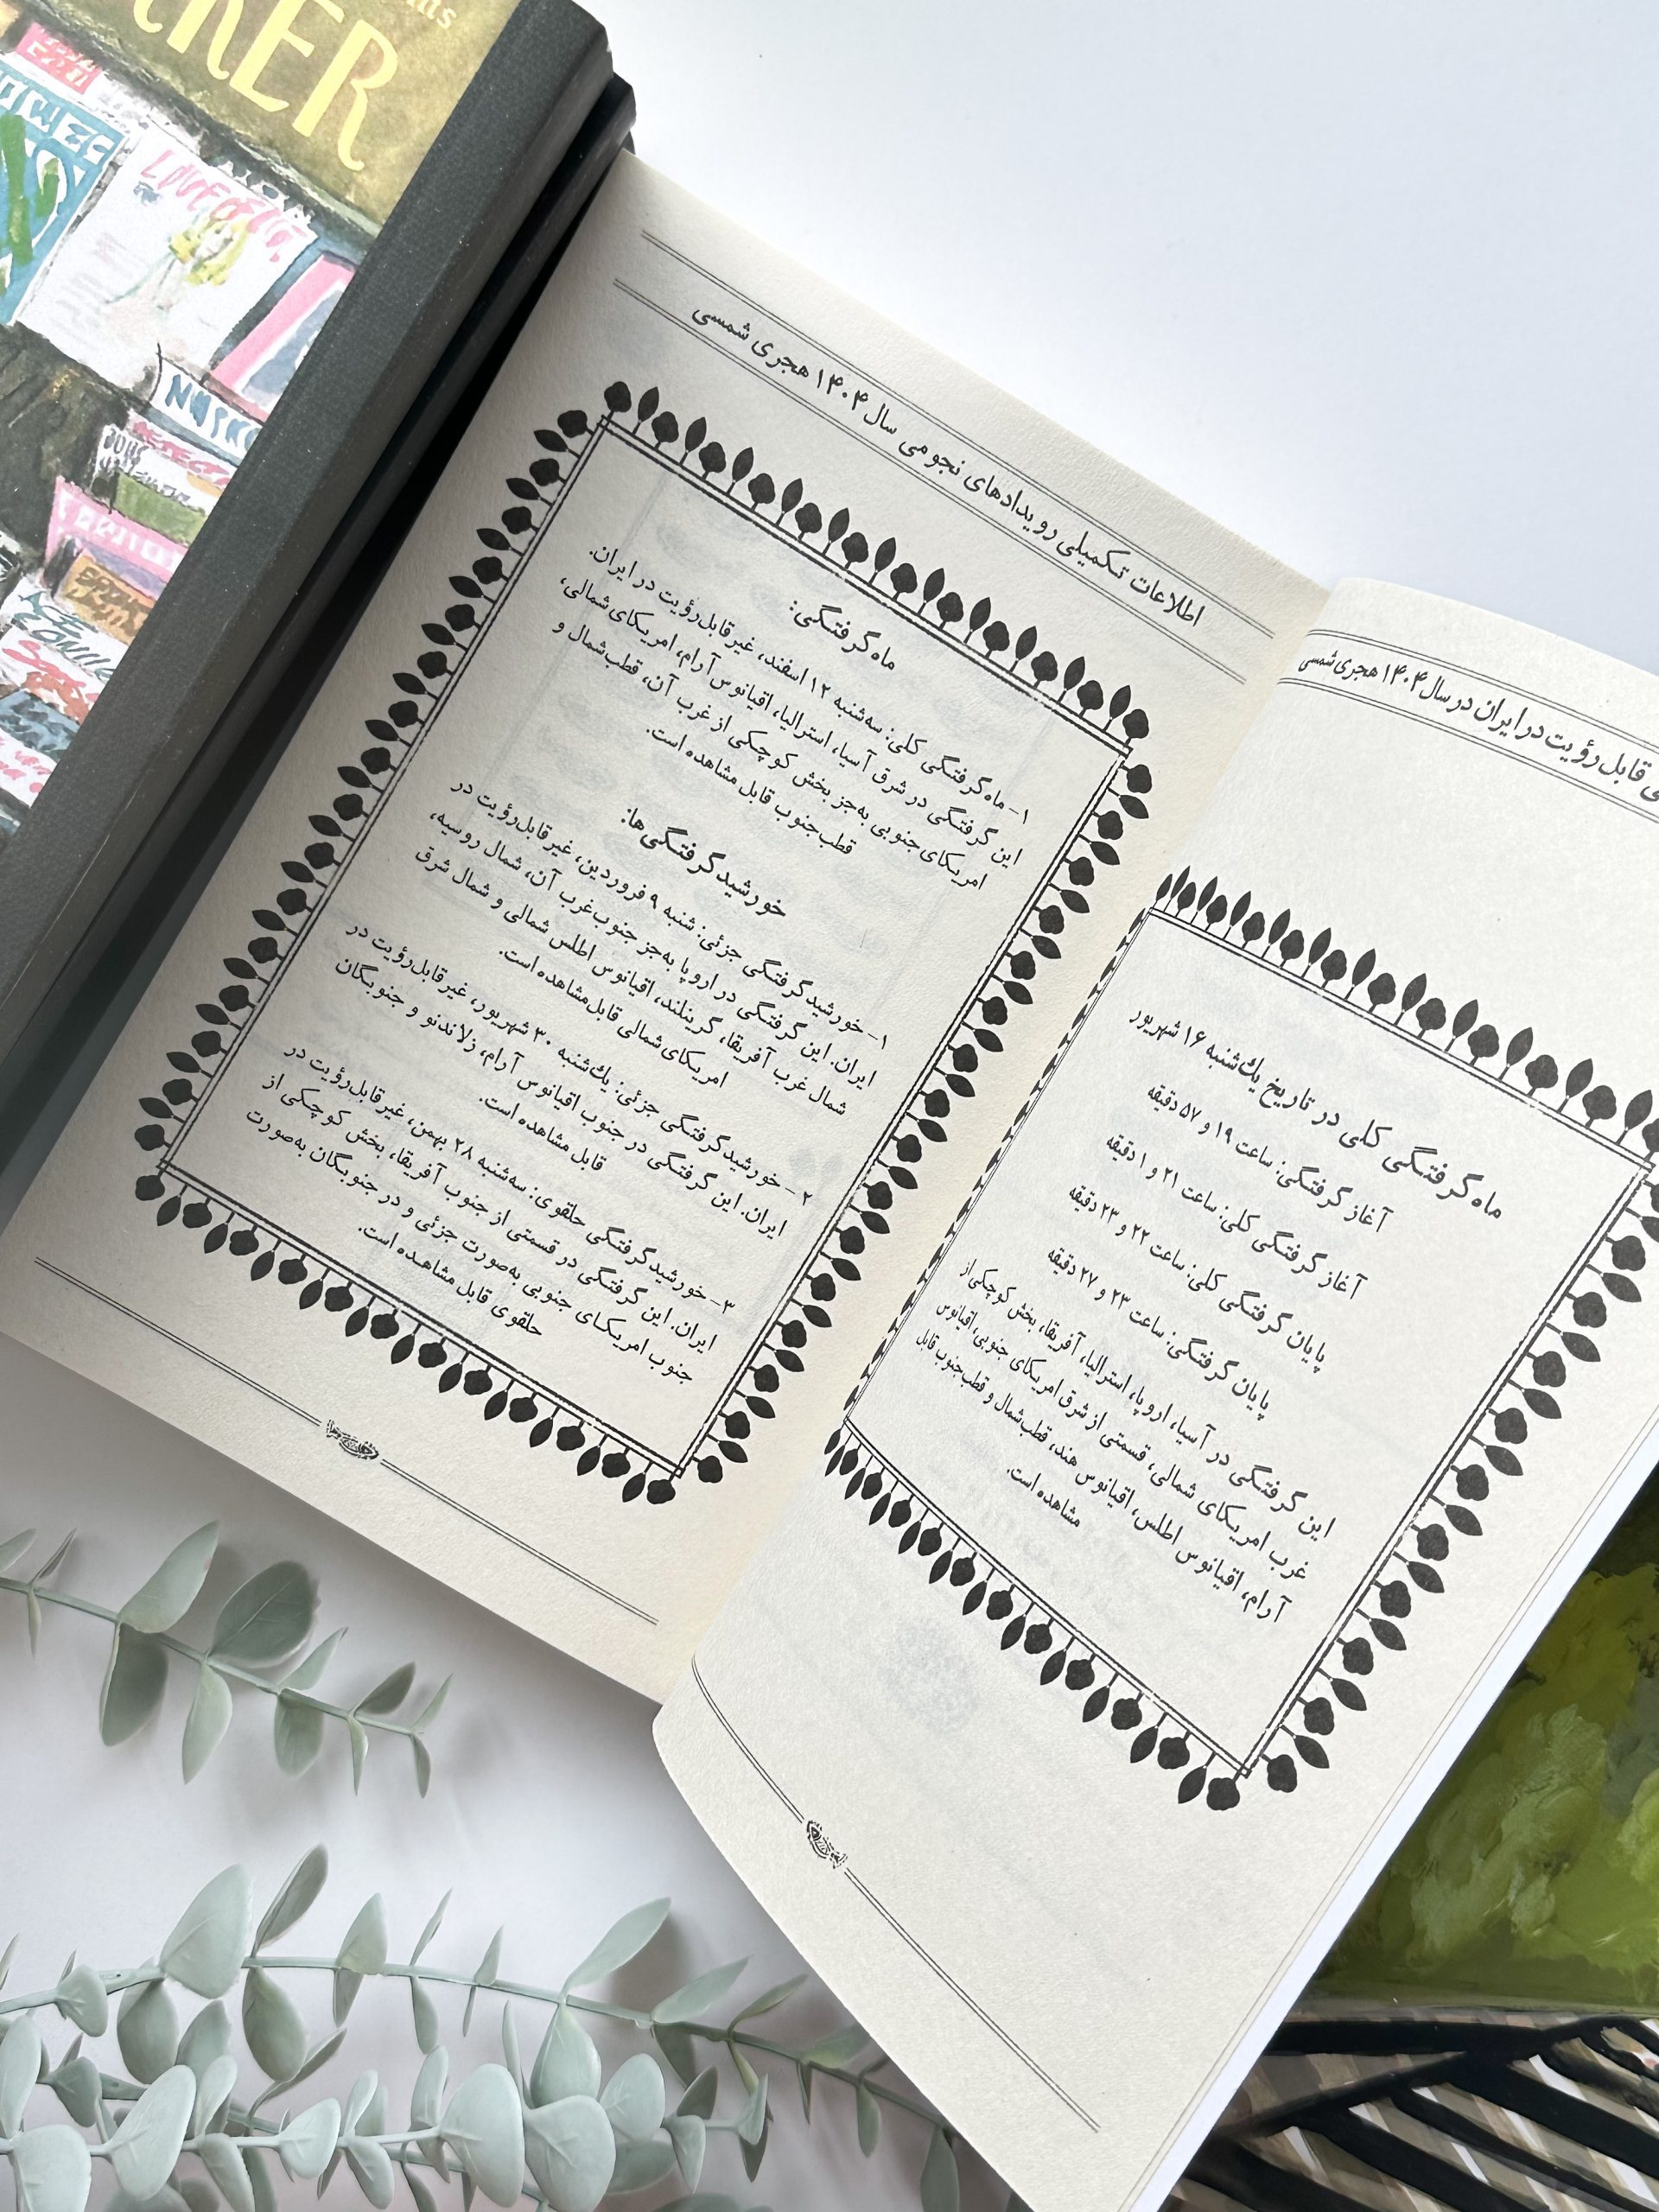 ی قابل رؤیت در ایران در سال ۱۴۰۴ هجری شمسی
ماه گرفتگی کلی در تاریخ یك‌شنبه ۱۶ شهریور
آغاز گرفتگی: ساعت ۱۹ و ۵۷ دقیقه
آغاز گرفتگی کلی: ساعت ۲۱ و ۱ دقیقه
پایان گرفتگی کلی: ساعت ۲۲ و ۲۳ دقیقه
پایان گرفتگی: ساعت ۲۳ و ۲۷ دقیقه
این گرفتگی در آسیا، اروپا، استرالیا، آفریقا، بخش کوچکی از
غرب امریکای شمالی، قسمتی از شرق امریکای جنوبی، اقیانوس
آرام، اقیانوس اطلس، اقیانوس هند، قطب‌شمال و قطب‌جنوب قابل
مشاهده است.
اطلاعات تکمیلی رویدادهای نجومی سال ۱۴۰۴ هجری شمسی
ماه گرفتگی:
۱- ماه گرفتگی کلی: سه‌شنبه ۱۲ اسفند، غیرقابل‌رؤیت در ایران.
این گرفتگی در شرق آسیا، استرالیا، اقیانوس آرام، امریکای شمالی،
امریکای جنوبی به‌جز بخش کوچکی از غرب آن، قطب‌شمال و
قطب‌جنوب قابل مشاهده است.
خورشید گرفتگی‌ها:
۱- خورشید گرفتگی جزئی: شنبه ۹ فروردین، غیرقابل‌رؤیت در
ایران. این گرفتگی در اروپا به‌جز جنوب‌غرب آن، شمال روسیه،
شمال غرب آفریقا، گرینلند، اقیانوس اطلس شمالی و شمال شرق
امریکای شمالی قابل مشاهده است.
۲- خورشید گرفتگی جزئی: یك‌شنبه ۳۰ شهریور، غیرقابل‌رؤیت در
ایران. این گرفتگی در جنوب اقیانوس آرام، زلاندنو و جنوبگان
قابل مشاهده است.
۳- خورشید گرفتگی حلقوی: سه‌شنبه ۲۸ بهمن، غیرقابل‌رؤیت در
ایران. این گرفتگی در قسمتی از جنوب آفریقا، بخش کوچکی از
جنوب امریکای جنوبی به‌صورت جزئی و در جنوبگان به‌صورت
حلقوی قابل مشاهده است.